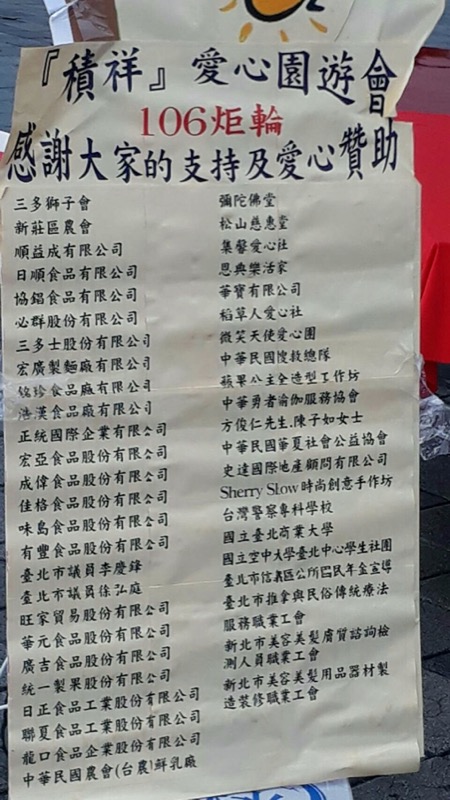 『積祥』愛心園遊會
106炬輪
感謝大家的支持及愛心贊助
三多獅子會
新莊區農會
順益成有限公司
日順食品有限公司
協錩食品有限公司
必群股份有限公司
三多士股份有限公司
宏廣製麵廠有限公司
銘珍食品廠有限公司
浩漢食品廠有限公司
正統國際企業有限公司
宏亞食品股份有限公司
成偉食品股份有限公司
佳格食品股份有限公司
味島食品股份有限公司
有豐食品股份有限公司
臺北市議員李慶鋒
臺北市議員徐弘庭
旺家貿易股份有限公司
華元食品股份有限公司
廣吉食品股份有限公司
統一製果股份有限公司
日正食品工業股份有限公司
聯夏食品工業股份有限公司
龍口食品企業股份有限公司
中華民國農會(台農)鮮乳廠
彌陀佛堂
松山慈惠堂
集馨愛心社
恩典樂活家
華寶有限公司
稻草人愛心社
微笑天使愛心團
中華民國搜救總隊
蘋果公主金造型工作坊
中華勇者瑜伽服務協會
方俊仁先生.陳子如女士
中華民國華夏社會公益協會
史達國際地產顧問有限公司
Sherry Slow時尚創意手作坊
台灣警察專科學校
國立臺北商業大學
國立空中大學臺北中心學生社團
臺北市信義區公所國民年金宣導
臺北市推拿與民俗傳統療法
服務職業工會
新北市美容美髮膚質諮詢檢
測人員職業工會
新北市美容美髮用品器材製
造裝修職業工會